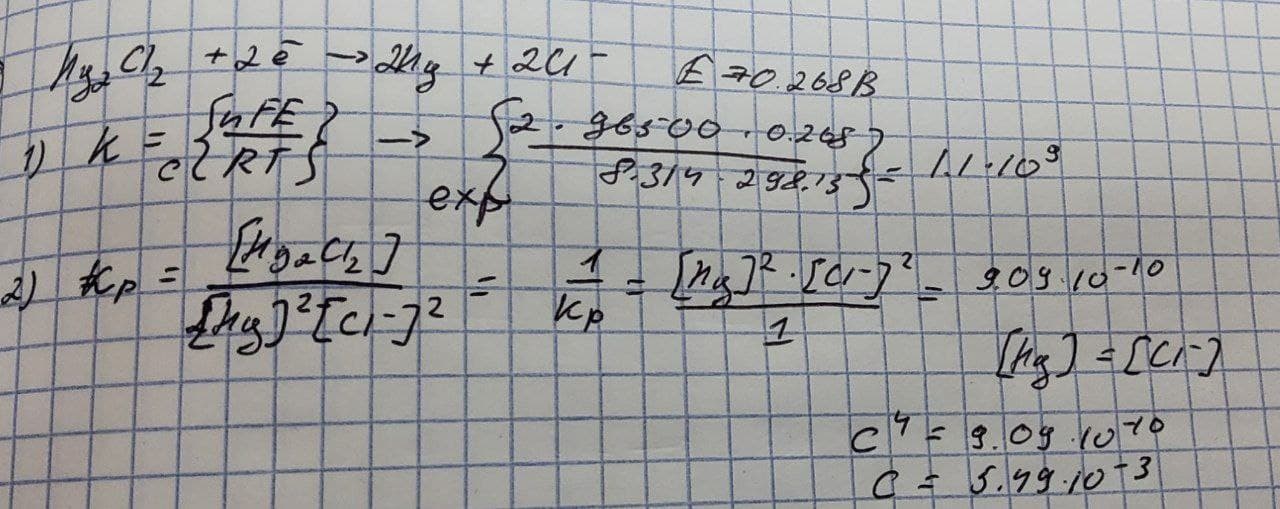 Hg₂Cl₂ + 2ē → 2Hg + 2Cl⁻ E = 0.268В
1) K = e{nFE/RT} → exp{2 · 96500 · 0.268 / 8.314 · 298.15} = 1.1 · 10⁹
2) Kp = [Hg₂Cl₂] / [Hg]²[Cl⁻]² = 1/Kp = [Hg]² · [Cl⁻]² / 1 = 9.09 · 10⁻¹⁰
[Hg] = [Cl⁻]
C⁴ = 9.09 · 10⁻¹⁰
C = 5.49 · 10⁻³